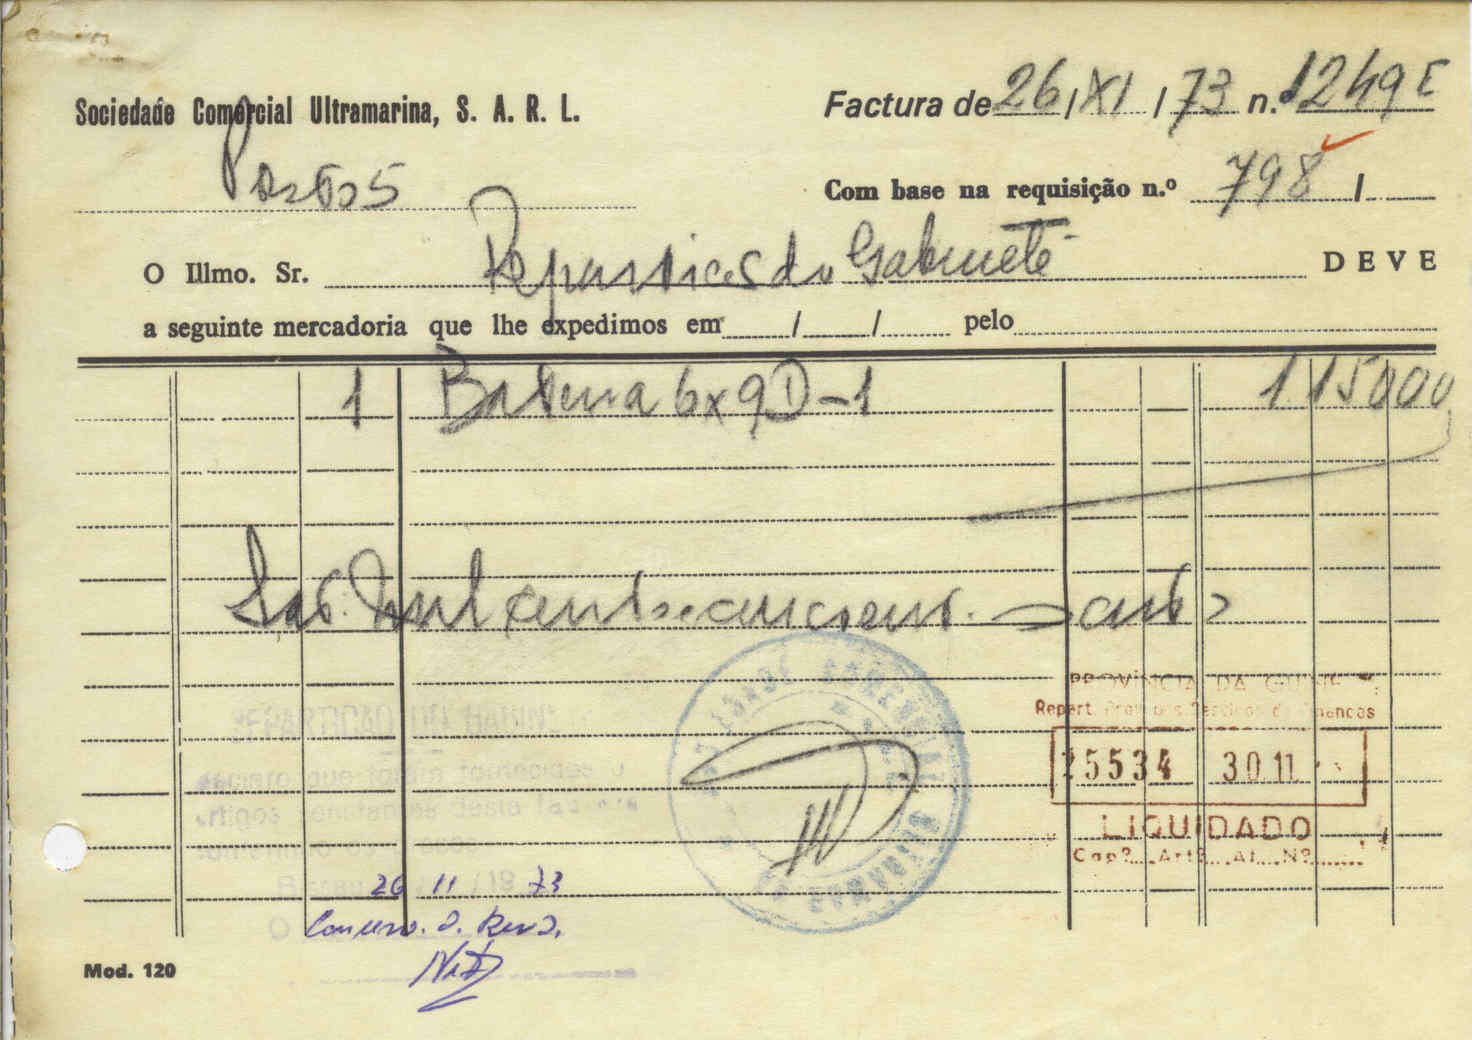 Sociedade Comercial Ultramarina, S. A. R. L.
Factura de 26 / XI / 73 n.º 1249 E
Com base na requisição n.º 798 /
O Illmo. Sr. Repartição do Gabinete DEVE
a seguinte mercadoria que lhe expedimos em / / pelo
1 Bateria 6x9D-1 1 150 00
São: Mil cento e cinquenta
PROVÍNCIA DA GUINÉ
Repart. Prov. dos Serviços de Finanças
25534 30 11
LIQUIDADO
Cap.º Art.º Al. N.º
SOCIEDADE COMERCIAL ULTRAMARINA
REPARTIÇÃO DO GABINETE
Declaro que foram fornecidos o
artigos constantes desta factura
Bissau 26 / 11 / 1973
O
Mod. 120